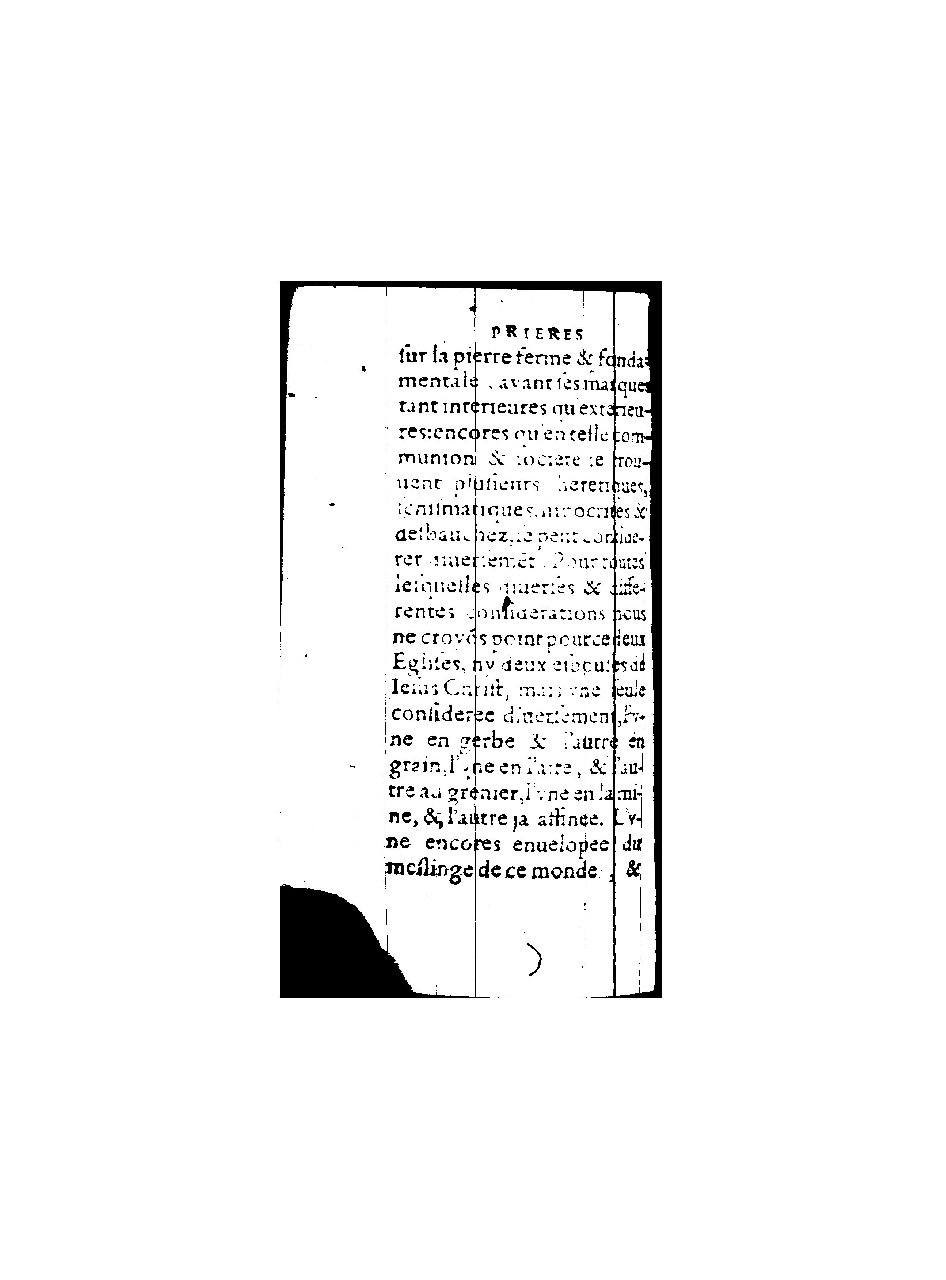 PRIERES
ſur la pierre ferme & fonda-
mentale, ayant ſes marques
tant interieures qu'exterieu-
res: encores qu'en telle com-
munion & ſocieté ſe trou-
uent pluſieurs heretiques,
ſchiſmatiques, hipocrites &
deſbauchez, ſe peut conſide-
rer Pour toutes
leſquelles & diffe-
rentes conſiderations nous
ne croyõs point pource deux
Egliſes, ny deux eſpouſes de
Ieſus Chriſt, mais vne ſeule
conſideree diuerſement, l'v-
ne en gerbe & l'autre en
grain, l'vne en l'aire, & l'au-
tre au grenier, l'vne en la mi-
ne, & l'autre ja affinee. L'v-
ne encores enuelopee du
meſlinge de ce monde, &